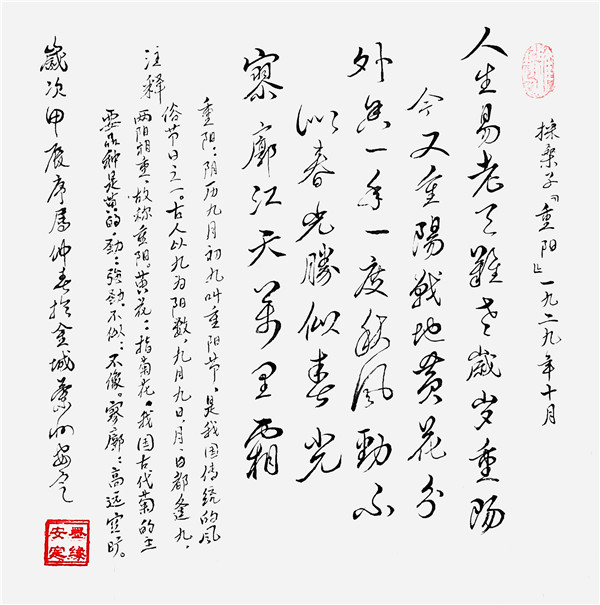 採桑子『重阳』一九二九年十月
人生易老天難老歲岁重陽
今又重陽戰地黄花分
外香一年一度秋風勁不
似春光勝似春光
寥廓江天萬里霜
注释
重阳：阴历九月初九叫重阳节，是我国传统的风
俗节日之一。古人以九为阳数，九月九日，月、日都逢九，
两阳相重，故称重阳。黄花：指菊花。我国古代菊的主
要品种是黄的。劲：強劲。不似：不像。寥廓：高远空旷。
歲次甲辰序属仲春於金城蘭州
墨緣